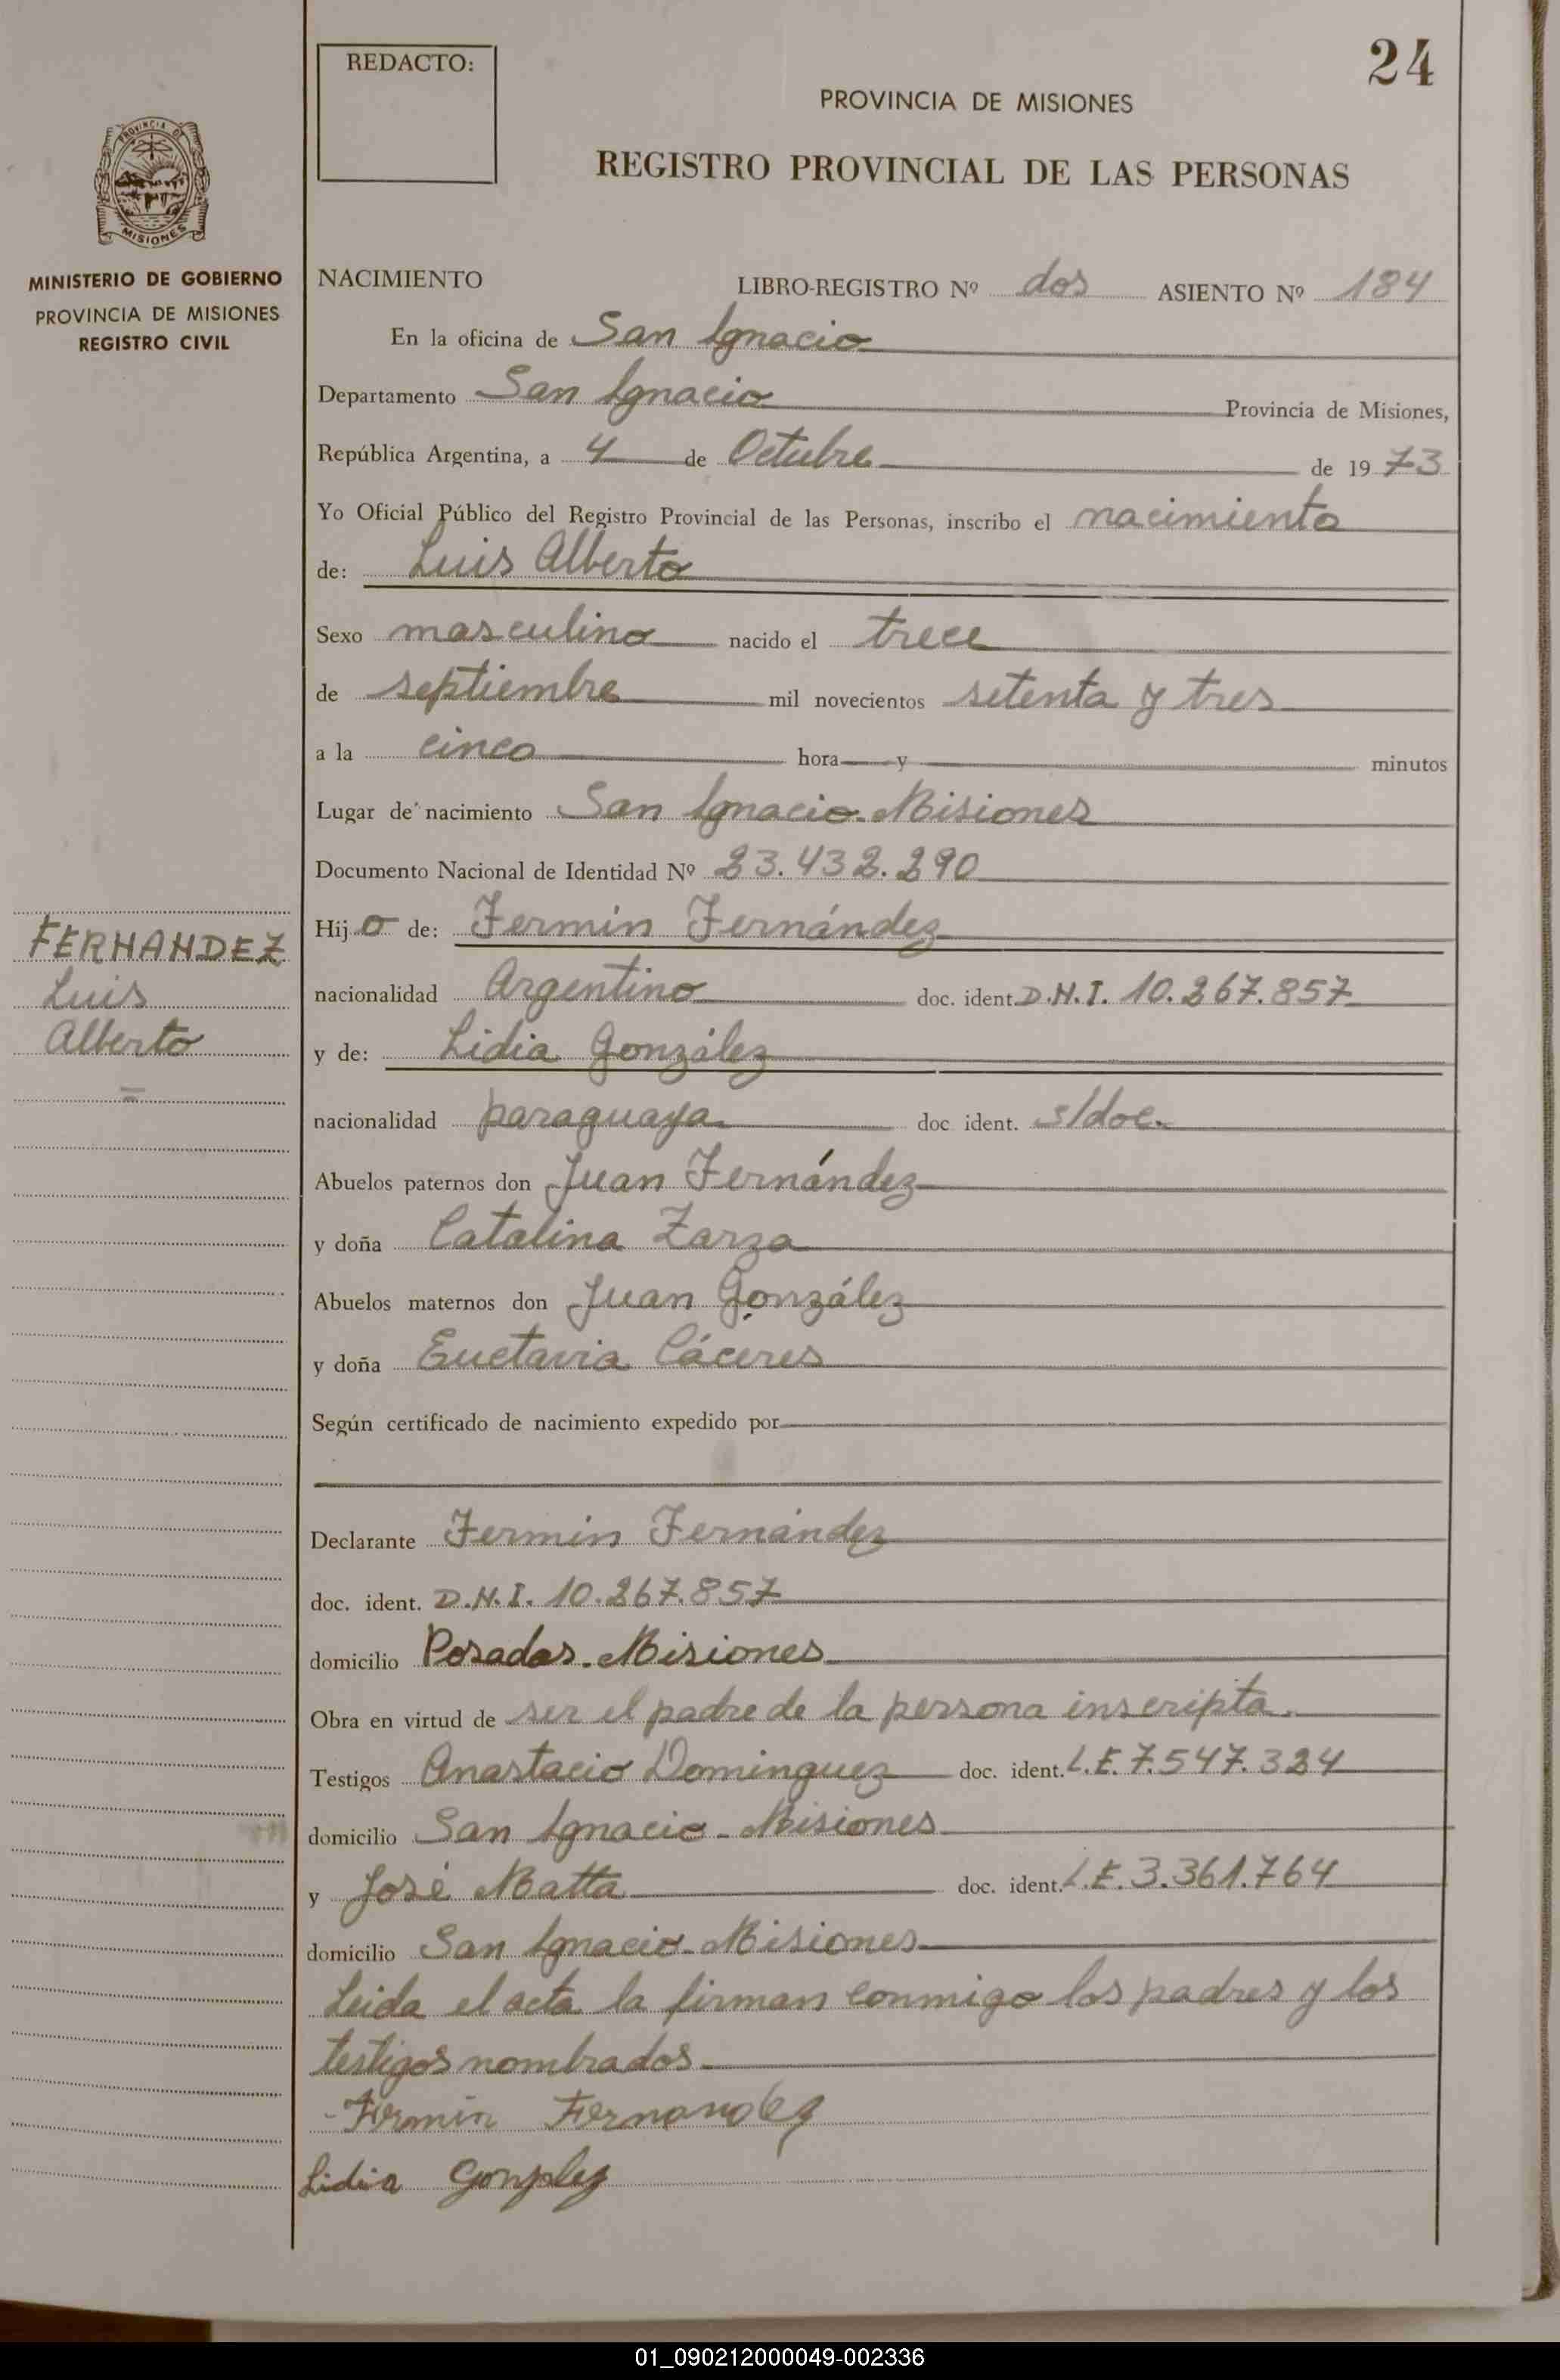 24
REDACTO:
PROVINCIA DE MISIONES
REGISTRO PROVINCIAL DE LAS PERSONAS
PROVINCIA DE
MISIONES
MINISTERIO DE GOBIERNO
PROVINCIA DE MISIONES
REGISTRO CIVIL
NACIMIENTO LIBRO-REGISTRO Nº dos ASIENTO Nº 184
En la oficina de San Ignacio
Departamento San Ignacio Provincia de Misiones,
República Argentina, a 4 de Octubre de 19 73
Yo Oficial Público del Registro Provincial de las Personas, inscribo el nacimiento
de: Luis Alberto
Sexo masculino nacido el trece
de septiembre mil novecientos setenta y tres
a la cinco hora y minutos
Lugar de nacimiento San Ignacio-Misiones
Documento Nacional de Identidad Nº 23.432.290
FERNANDEZ
Luis
Alberto
Hij o de: Fermín Fernández
nacionalidad Argentino doc. ident. D.N.I. 10.267.857
y de: Lidia González
nacionalidad paraguaya doc ident. s/doc.
Abuelos paternos don Juan Fernández
y doña Catalina Zarza
Abuelos maternos don Juan González
y doña Euctavia Cáceres
Según certificado de nacimiento expedido por
Declarante Fermín Fernández
doc. ident. D.N.I. 10.267.857
domicilio Posadas-Misiones
Obra en virtud de ser el padre de la persona inscripta.
Testigos Anastacio Dominguez doc. ident. L.E. 7.547.324
domicilio San Ignacio-Misiones
y José Matta doc. ident. L.E. 3.361.764
domicilio San Ignacio-Misiones
Leida el acta la firman conmigo los padres y los
testigos nombrados
Fermin Fernandez
Lidia Gonzalez
01_090212000049-002336